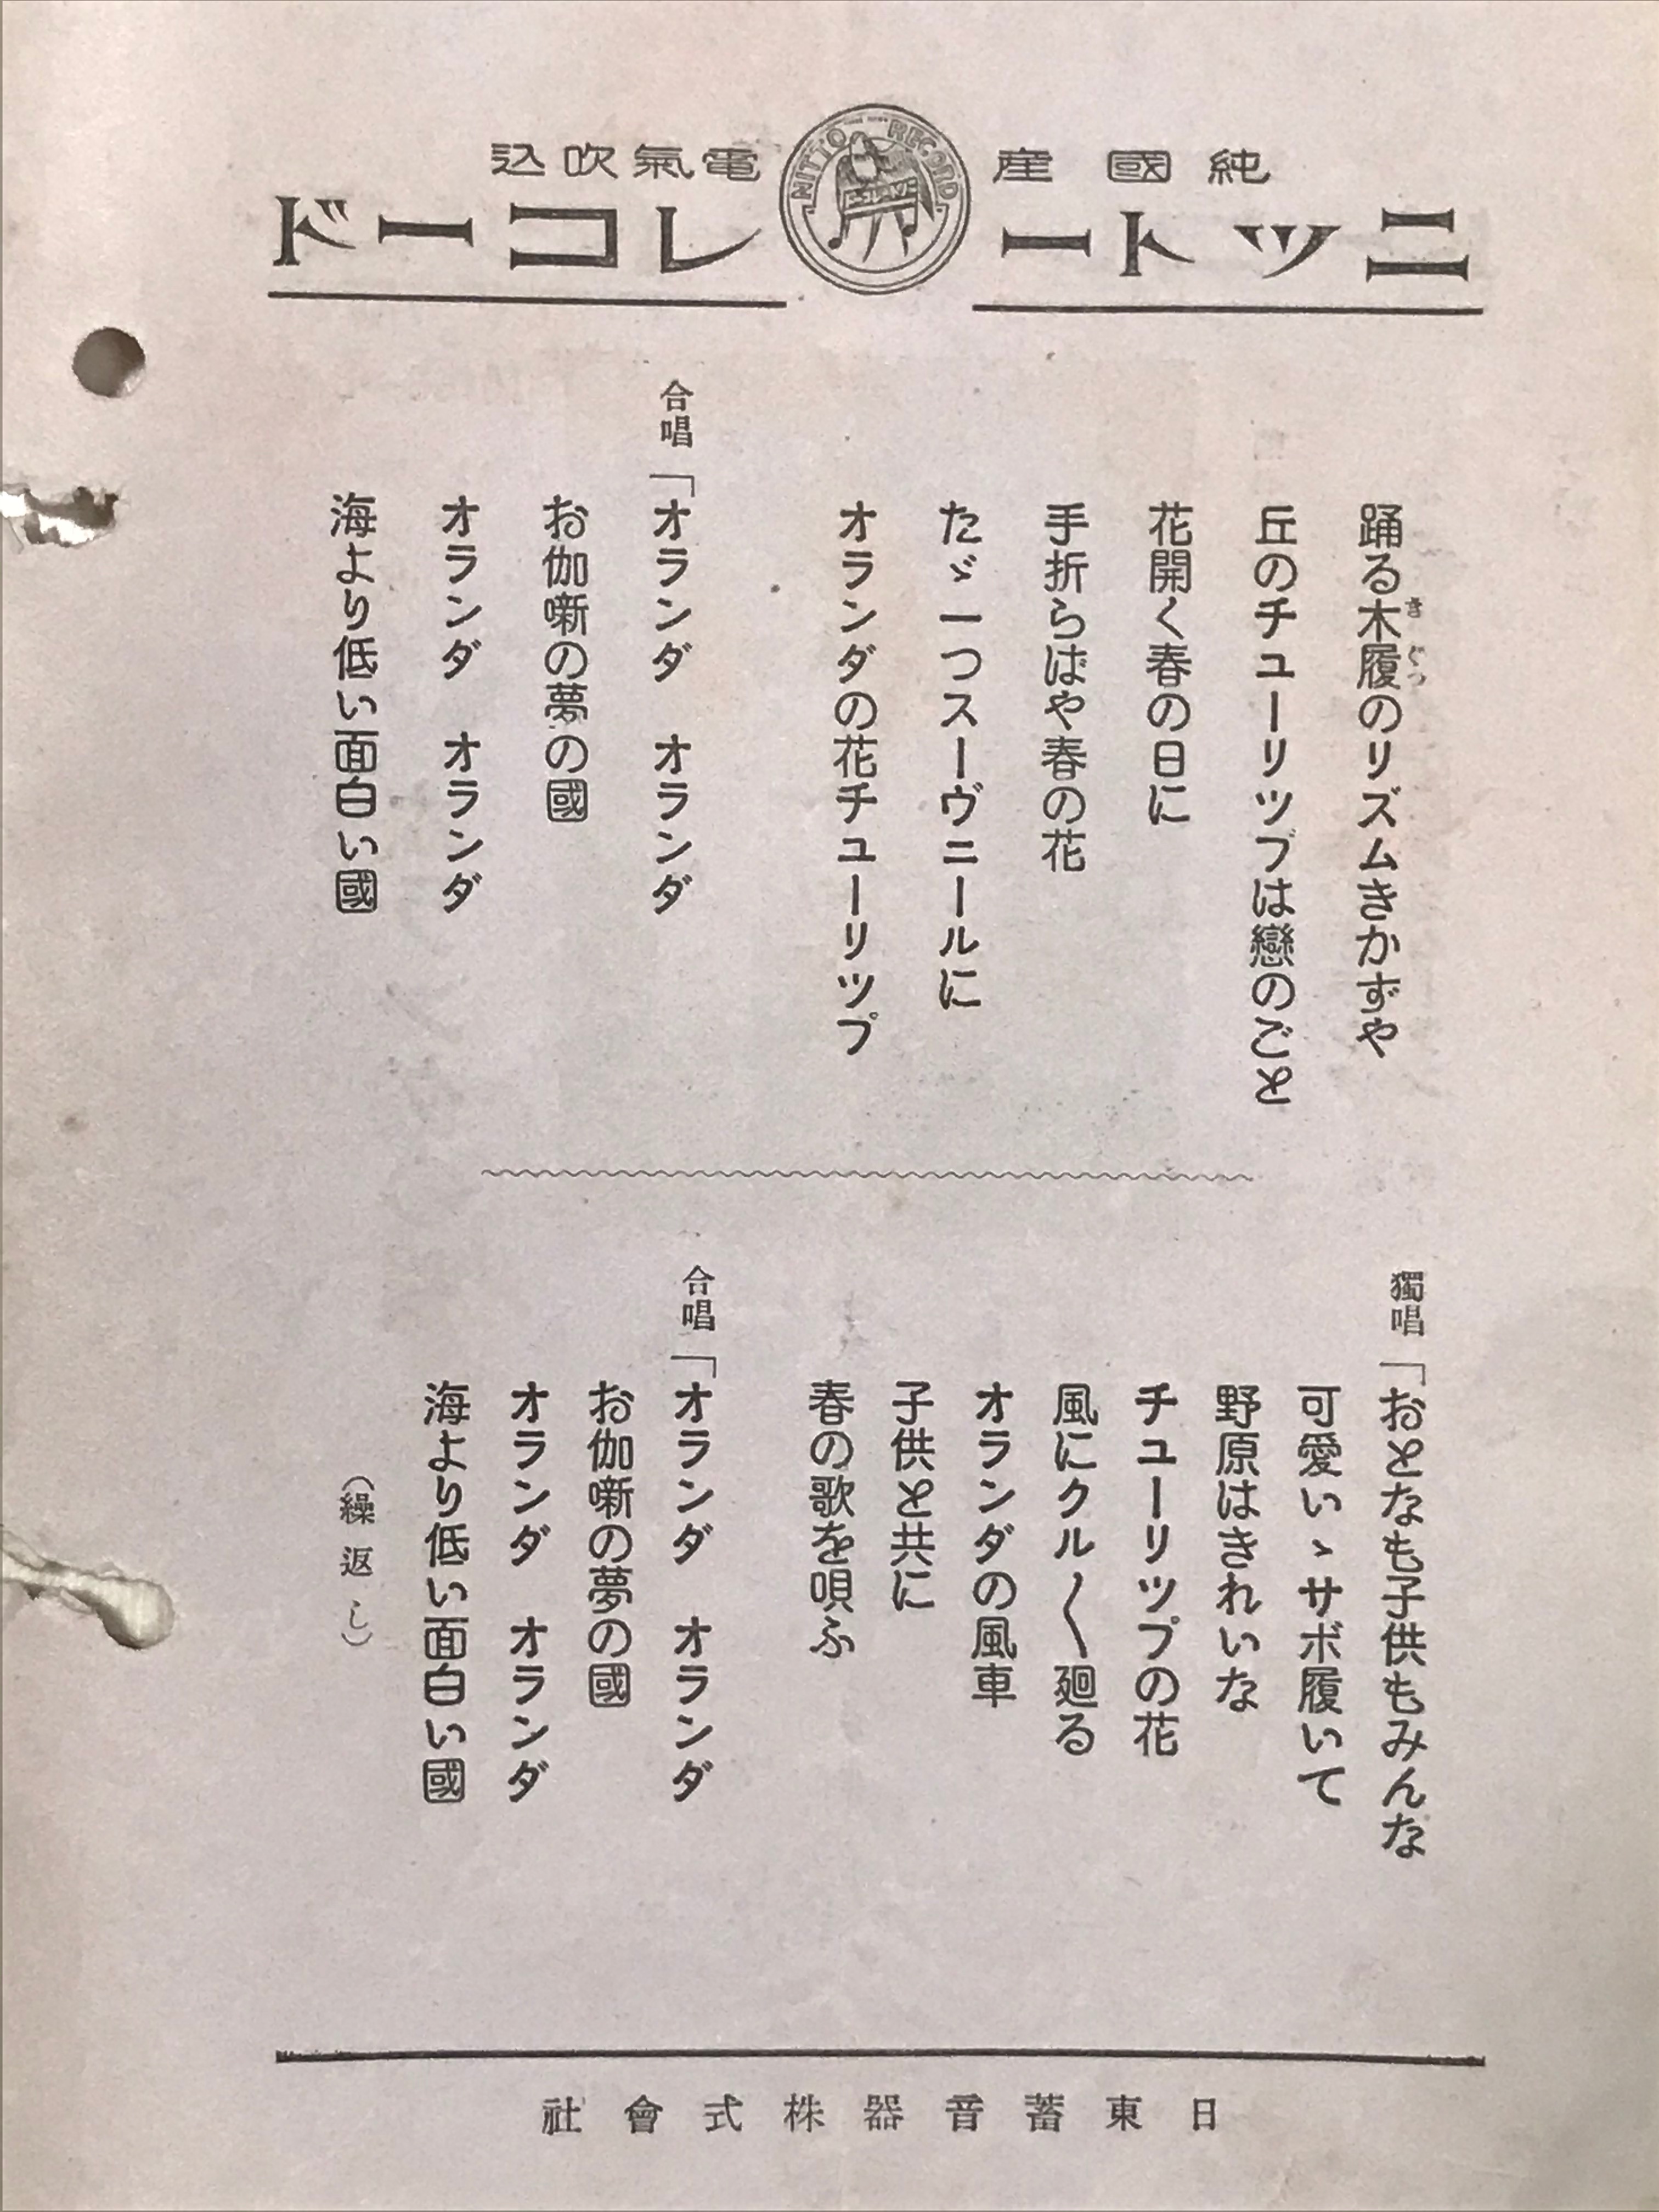 純國產
電氣吹込
NITTO RECORD
ニットーレコード
踊る木履のリズムきかずや
きぐつ
丘のチューリップは戀のごと
花開く春の日に
手折らばや春の花
たゞ一つスーヴニールに
オランダの花チューリップ
合唱「オランダ　オランダ
お伽噺の夢の國
オランダ　オランダ
海より低い面白い國
獨唱「おとなも子供もみんな
可愛いゝサボ履いて
野原はきれいな
チューリップの花
風にクル〱廻る
オランダの風車
子供と共に
春の歌を唄ふ
合唱「オランダ　オランダ
お伽噺の夢の國
オランダ　オランダ
海より低い面白い國
（繰返し）
日東蓄音器株式會社